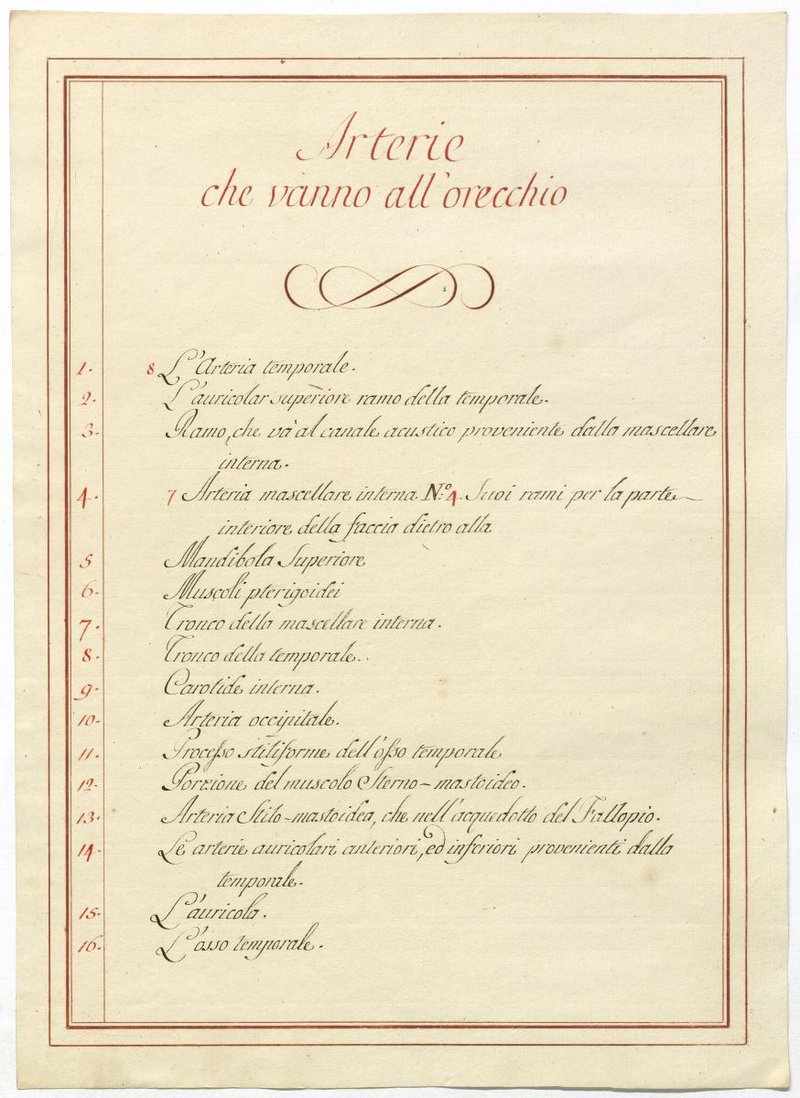 Arterie
che vanno all'orecchio
1. 8 L'Arteria temporale.
2. L'auricolar superiore ramo della temporale.
3. Ramo, che và al canale acustico proveniente dalla mascellare
interna.
4. 7 Arteria mascellare interna N.º 4. Suoi rami per la parte
interiore della faccia dietro alla
5 Mandibola Superiore
6. Muscoli pterigoidei
7. Tronco della mascellare interna.
8. Tronco della temporale.
9. Carotide interna.
10. Arteria occipitale.
11. Processo stiliforme dell'osso temporale
12. Porzione del muscolo Sterno-mastoideo.
13. Arteria Stilo-mastoidea, che nell'acquedotto del Fallopio.
14. Le arterie auricolari anteriori, ed inferiori provenienti dalla
temporale.
15. L'auricola.
16. L'osso temporale.